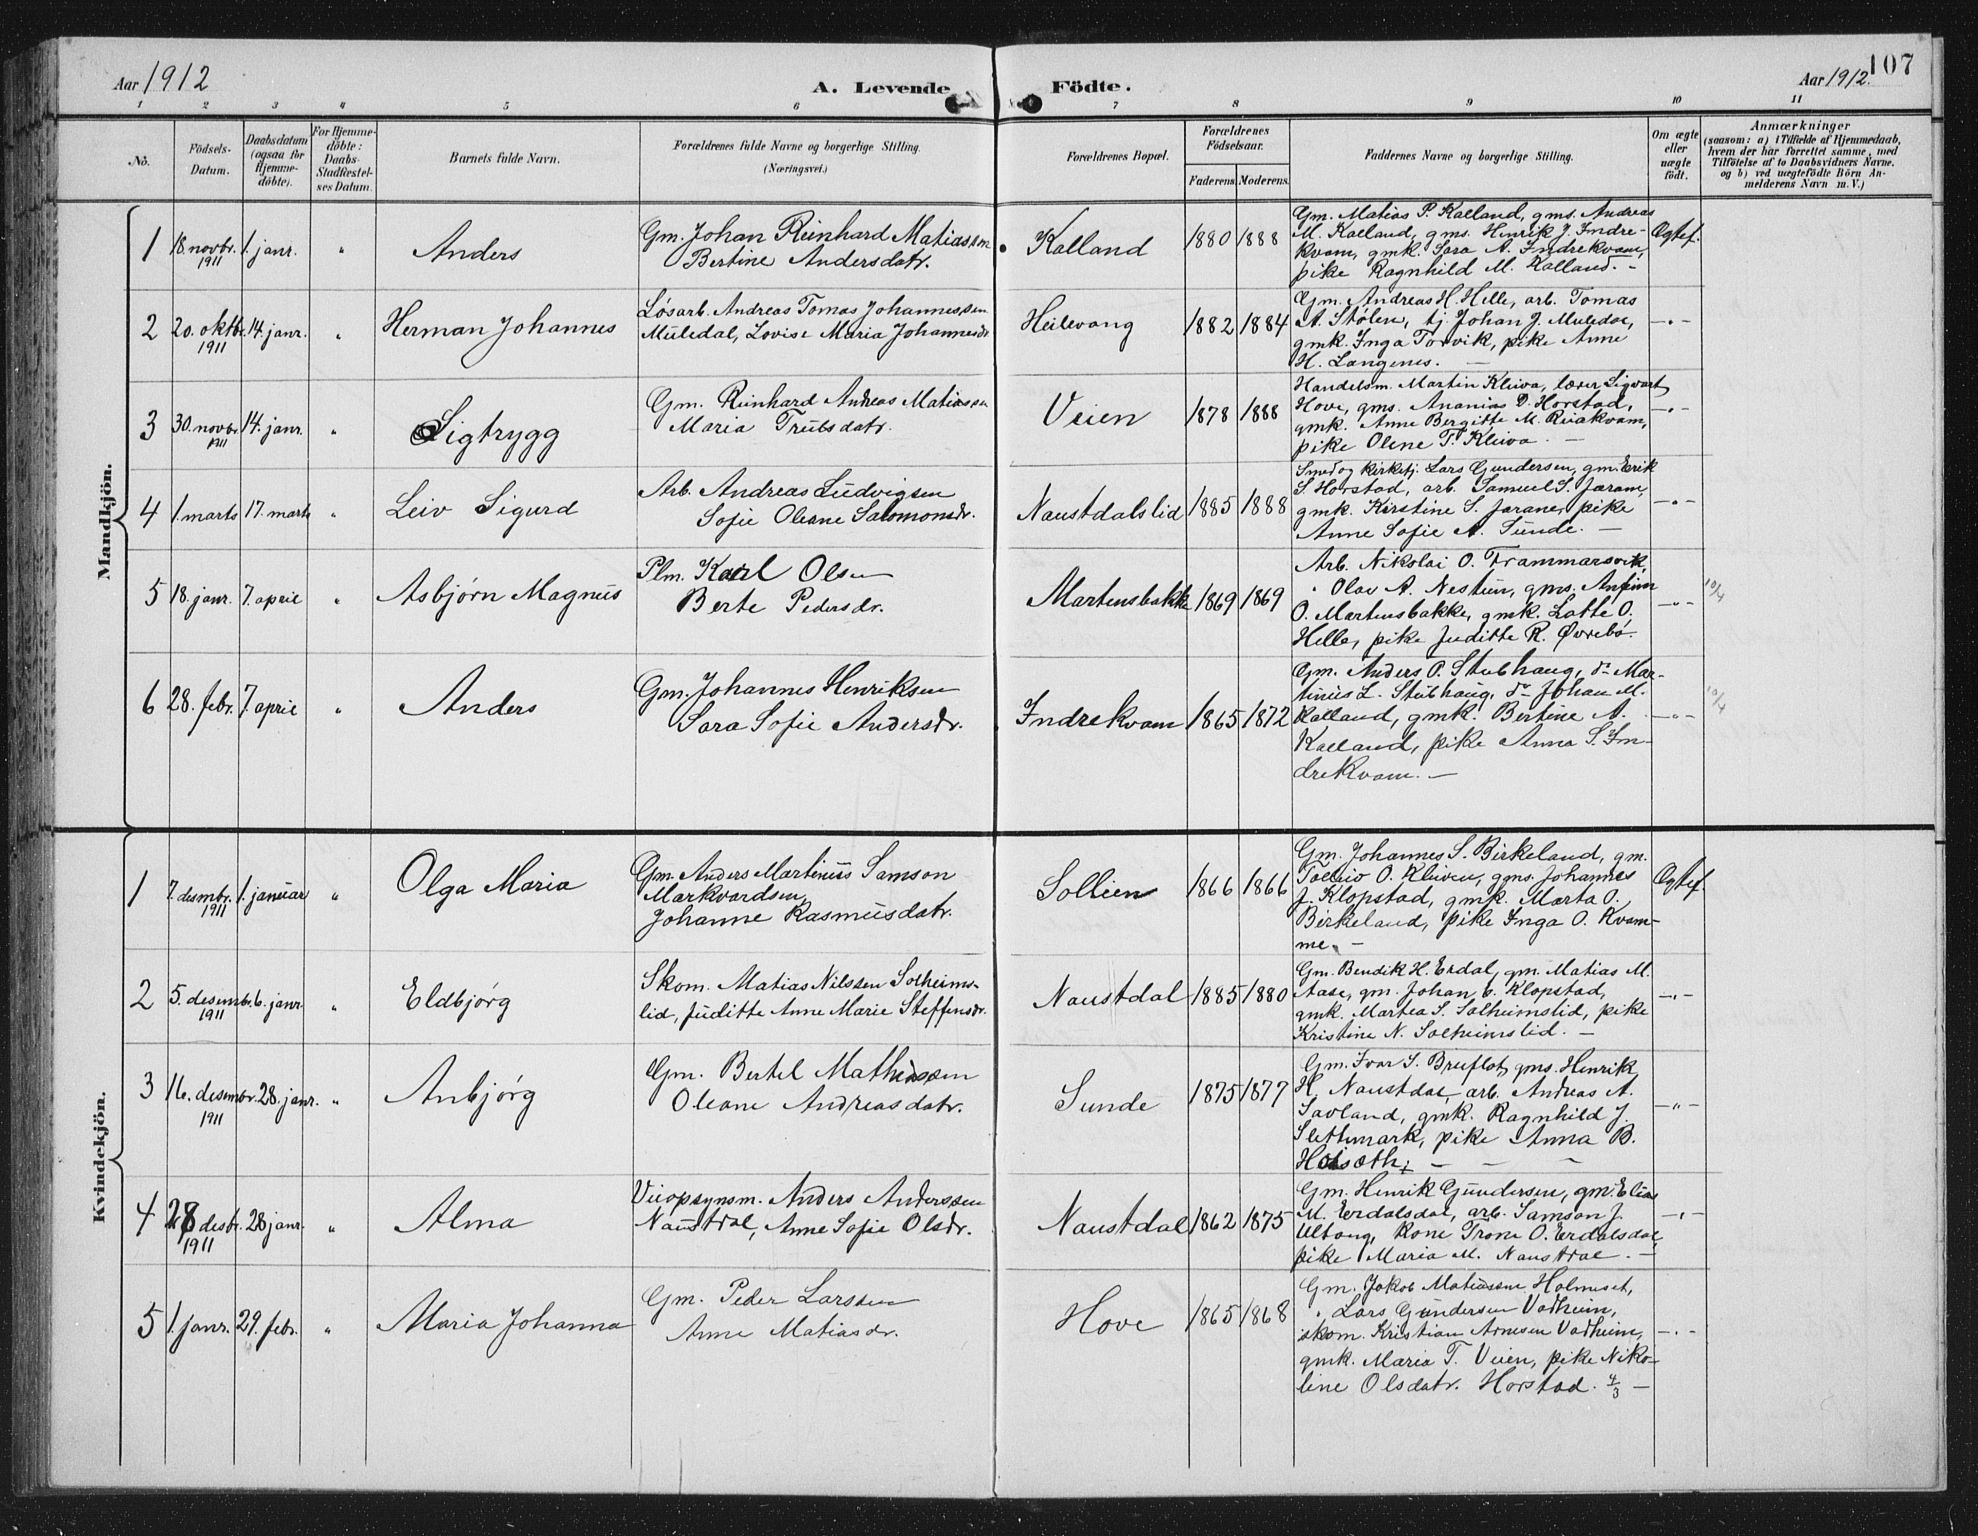 107
Aar 1912 A. Levende Födte. Aar 1912.
1 2 3 4 5 6 7 8 9 10 11
No. Födsels-Datum. Daabsdatum (ogsaa for Hjemme-döbte). For Hjemme-döbte: Daabs-Stadfæstel-ses Datum. Barnets fulde Navn. Forældrenes fulde Navne og borgerlige Stilling. (Næringsvei.) Forældrenes Bopæl. Forældrenes Födselsaar. Faderens. Moderens. Faddernes Navne og borgerlige Stilling. Om ægte eller uægte födt. Anmærkninger
(saasom: a) i Tilfælde af Hjemmedaab, hvem der har forrettet samme, med Tilföielse af to Daabsvidners Navne, og b) ved uægtefödte Börn An-melderens Navn m. V.)
Mandkjön.
1 18 novbr. 1911 1. janr. " Anders
Gm. Johan Reinhard Matiassen
Bertine Andersdatr.
Kalland 1880 1888
Gm. Matias P. Kalland, gms. Andreas
M. Kalland, gms. Henrik J. Indre-
kvam, gmk. Sara A. Indrekvam,
pike Ragnhild M. Kalland. -
Egtef.
2 20. oktbr. 1911 14. janr. " Herman Johannes
Løsarb. Andreas Tomas Johannessen
Muledal, Lovise Maria Johannesdr.
Heilevang 1882 1884
Gm. Andreas H. Helle, arb. Tomas
A. Stølen, tj. Johan J. Muledal,
gmk. Inga Torvik, pike Anne
H. Langenes. -
-"-
3 30. novbr. 1911 14. janr. " Sigtrygg
Gm. Reinhard Andreas Matiassen
Maria Trulsdatr.
Veien 1878 1888
Handelsm. Martin Kleiva, lærer Sigvart
Hove, gms. Ananias D. Horstad,
gmk. Anne Bergitte M. Reiakvam,
pike Olene T. Kleiva. -
-"-
4 1. marts 17. marts " Leiv Sigurd
Arb. Andreas Ludvigsen
Sofie Oleane Salomonsdr.
Naustdalslid 1885 1888
Smed og kirketj. Lars Gundersen, gm. Erik
S. Horstad, arb. Samuel S. Jarane,
gmk. Kirstine S. Jarane, pike
Anne Sofie A. Sunde. -
-"-
5 18. janr. 7. april " Asbjørn Magnus
Plm. Karl Olsen
Berte Pedersdr.
Martensbakke 1869 1869
Arb. Nikolai O. Frammarsvik,
" Olav A. Nestun, gms. Anfinn
O. Martensbakke, gmk. Lotte O.
Helle, pike Juditte R. Øvrebø.
-"- 10/4
6 28. febr. 7. april " Anders
Gm. Johannes Henriksen
Sara Sofie Andersdr.
Indrekvam 1865 1872
Gm. Anders O. Stubhaug, do Mar-
tinus L. Stubhaug, do Johan M.
Kalland, gmk. Bertine A.
Kalland, pike Anna S. In-
drekvam. -
-"- 10/4
Kvindekjön.
1 7. desmbr. 1911 1. januar " Olga Maria
Gm. Anders Martinus Samson
Markvardsen,
Johanne Rasmusdatr.
Sollien 1866 1866
Gm. Johannes S. Birkeland, gm.
Tolleiv O. Kleiven, gms. Johannes
J. Klopstad, gmk. Marta O.
Birkeland, pike Inga O. Kvam-
me. -
Egtef.
2 5. desembr. 1911 6. janr. " Eldbjørg
Skom. Matias Nilssen Solheims-
lid, Juditte Anne Marie Steffensdr.
Naustdal 1885 1880
Gm. Bendik H. Erdal, gm. Matias M.
Aase, gm. Johan O. Klopstad,
gmk. Martea S. Solheimslid, pike
Kristine N. Solheimslid. -
-"-
3 16. desmbr. 1911 28. janr. " Anbjørg
Gm. Bertel Mathiassen
Oleane Andreasdatr.
Sunde 1875 1877
Gm. Ivar S. Bruflot, gms. Henrik
H. Naustdal, arb. Andreas A.
Savland, gmk. Ragnhild J.
Slettemark, pike Anna B.
-"-
4 28 desbr. 1911 28 janr. " Alma
Veiopsynsm. Anders Anderssen
Naustdal, Anne Sofie Olsdr.
Naustdal 1862 1875
Gm. Henrik Gundersen, gm. Elias
M. Erdalsdal, arb. Samson J.
Ultang, kone Trone O. Erdalsdal,
pike Maria M. Naustdal. -
-"-
5 1. janr. 29. febr. " Maria Johanna
Gm. Peder Larssen
Anne Matiasdr.
Hove 1865 1868
Gm. Jakob Matiassen Holmset,
" Lars Gundersen Vadheim,
skom. Kristian Arnesen Vadheim,
gmk. Maria T. Veien, pike Niko-
line Olsdatr. Horstad. 4/3 -
-"-